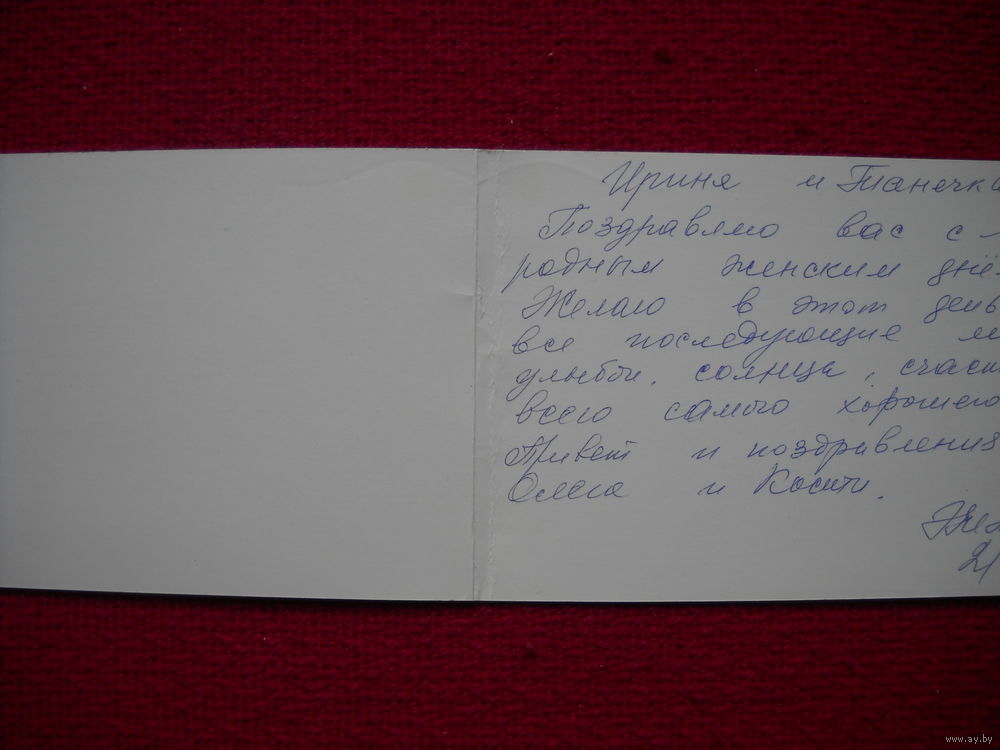 Ириня и Танечка
Поздравляю вас с
родным женским днё
Желаю в этот день
все последующие
улыбок, солнца, счаст
всего самого хорошего
Привет и поздравления
Олега и Кости.
21
www.ay.by